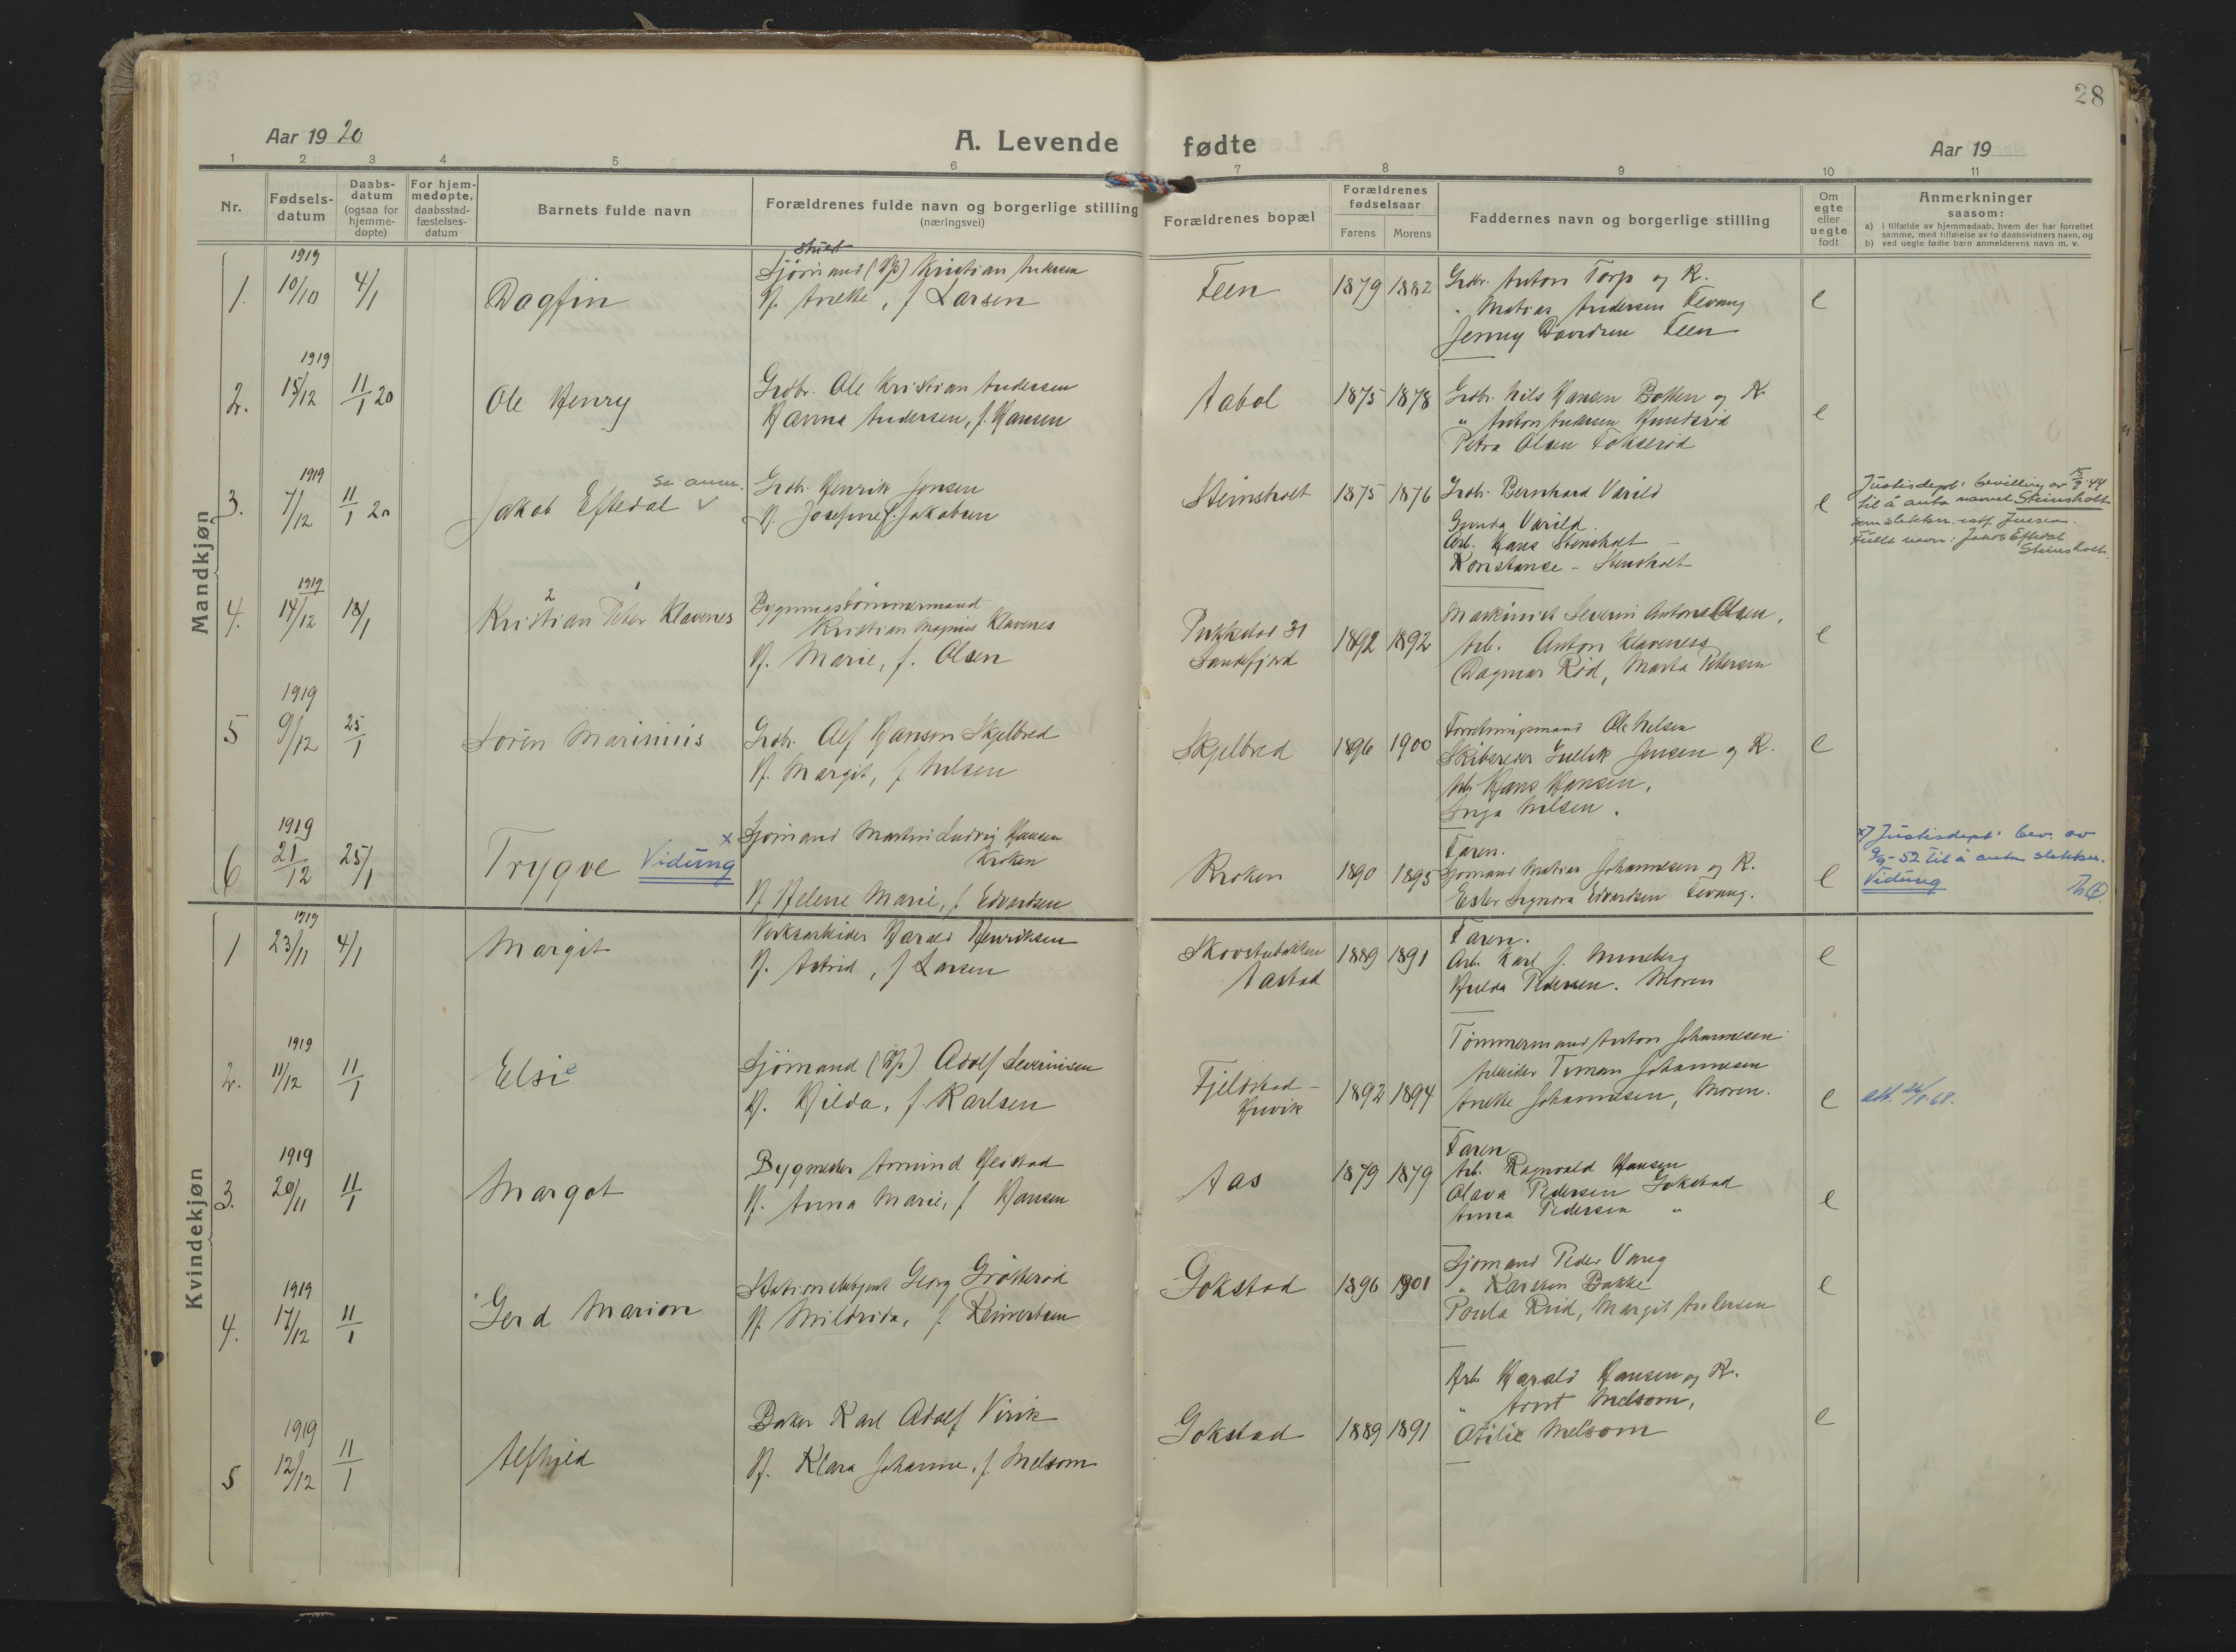 28
Aar 1920
A. Levende fødte
Aar 19
1 2 3 4 5 6 7 8 9 10 11
Nr.
Fødsels-
datum
Daabs-
datum
(ogsaa for
hjemme-
døpte)
For hjem-
medøpte,
daabsstad-
fæstelses-
datum
Barnets fulde navn
Forældrenes fulde navn og borgerlige stilling
(næringsvei)
Forældrenes bopæl
Forældrenes
fødselsaar
Farens Morens
Faddernes navn og borgerlige stilling
Om
egte
eller
uegte
født
Anmerkninger
saasom:
a) i tilfælde av hjemmedaab, hvem der har forrettet
samme, med tilføielse av to daabsvidners navn, og
b) ved uegte fødte barn anmelderens navn m. v.
Mandkjøn
1919
1. 10/10 4/1 Dagfin
Sjømand Kristian Andersen
H. Anette, f Larsen
Feen 1879 1882
Grdbr. Anton Torp og K.
" Matias Andersen Fevang
Jenny Davidsen Feen
e
1919
2. 15/12 11/1 20 Ole Henry
Grdbr. Ole Kristian Andersen
Hanna Andersen, f. Hansen
Aabol 1875 1878
Grdbr. Nils Hansen Bakken og K
" Anton Andersen Hundsrød
Petra Olsen Fokserød
e
1919
3. 7/12 11/1 20 Jakob Eftedal
se anm.
Grdbr. Henrik Jensen
H. Josefine f. Jakobsen
Steinsholt 1875 1876
Grdbr. Bernhard Varild
Gunda Varild.
Arb. Hans Stensholt
Konstanse - Stensholt
e
Justisdept' bevilling av 15/8-44
til å anta navnet Steinsholt
som slektsn. istf Jensen.
Fulle navn: Jakob Eftedal
Steinsholt.
1919
4. 14/12 18/1 Kristian Peter Klavenes
2 1
Bygningstømmermand
Kristian Magnus Klavenes
H. Marie, f. Olsen
31
Sandefjord
1892 1892
Maskinist Severin Antons Olsen,
Arb. Anton Klaveness
Dagmar Rød, Marta Petersen
e
1919
5 9/12 25/1 Søren Marinius
Grdbr. Alf Hansen Skjelbred
H. Margit, f Nilsen
Skjelbred 1896 1900
Forretningsmand Ole Nilsen
Skibsreder Gullik Jensen og K.
Arb. Hans Hansen,
Inga Nilsen.
e
1919
6 21/12 25/1 Trygve Vidung x
Sjømand Martin Ludvig Hansen
Kroken
H Helene Marie, f Edvardsen
Kroken 1890 1895
Faren.
Sjømand Matias Johannesen og K.
Ester Signora Edvardsen Fevang.
e
x) Justisdept' bev. av
9/9-52 til å anta slektsn.
Vidung
Kvindekjøn
1919
1 23/11 4/1 Margit
Verksarbeider Harald Henriksen
H. Astrid, f Larsen
Aastad
1889 1891
Faren.
Arb. Karl J. Muneberg
Hulda Pedersen. Moren
e
1919
2. 11/12 11/1 Elsie
Sjømand Adolf Severinsen
H. Hilda, f. Karlsen
Fjeldstad -
Huvik
1892 1894
Tømmermand Anton Johannesen
Arbeider Timan Johannesen
Anette Johannesen, Moren.
e
att. 26/8-68.
1919
3. 20/11 11/1 Margot
Bygmester Amund Heistad
H. Anna Marie, f Hansen
Aas 1879 1879
Faren
Arb. Ragnvald Hansen
Olava Pedersen Gokstad
Anna Pedersen "
e
1919
4. 17/12 11/1 Gerd Marion
Georg Grøtterød
H. Mildrida, f. Reinertsen
Gokstad 1896 1901
Sjømand Peder Vareg
" Karsten Bakke
Paula Ruud, Margit Andersen
e
1919
5 12/12 11/1 Alfhild
Baker Karl Adolf Virik
H. Klara Johanne, f. Melsom
Gokstad 1889 1891
Arb Harald Hansen og K.
" Arnt Melsom,
Otilie Melsom
e